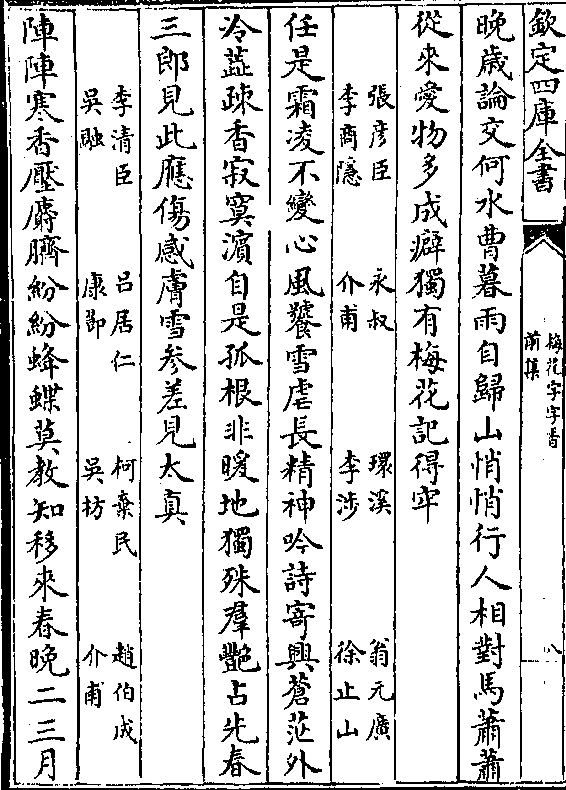 欽定四庫全書
梅花字字香
前集
八
晩歲論交何水曹暮雨自歸山悄悄行人相對馬蕭蕭
從來愛物多成癖獨有梅花記得牢
張彦臣 永叔 環溪 翁元廣
李商隱 介甫 李涉 徐止山
任是霜凌不變心風饕雪虐長精神吟詩寄興蒼茫外
冷蘂疎香寂寞濵自是孤根非暖地獨殊羣艶占先春
三郎見此應傷感膚雪參差見太真
李清臣 吕居仁 柯棄民 趙伯成
吳融 康節 吳枋 介甫
陣陣寒香壓麝臍紛紛蜂蝶莫教知移來春晚二三月